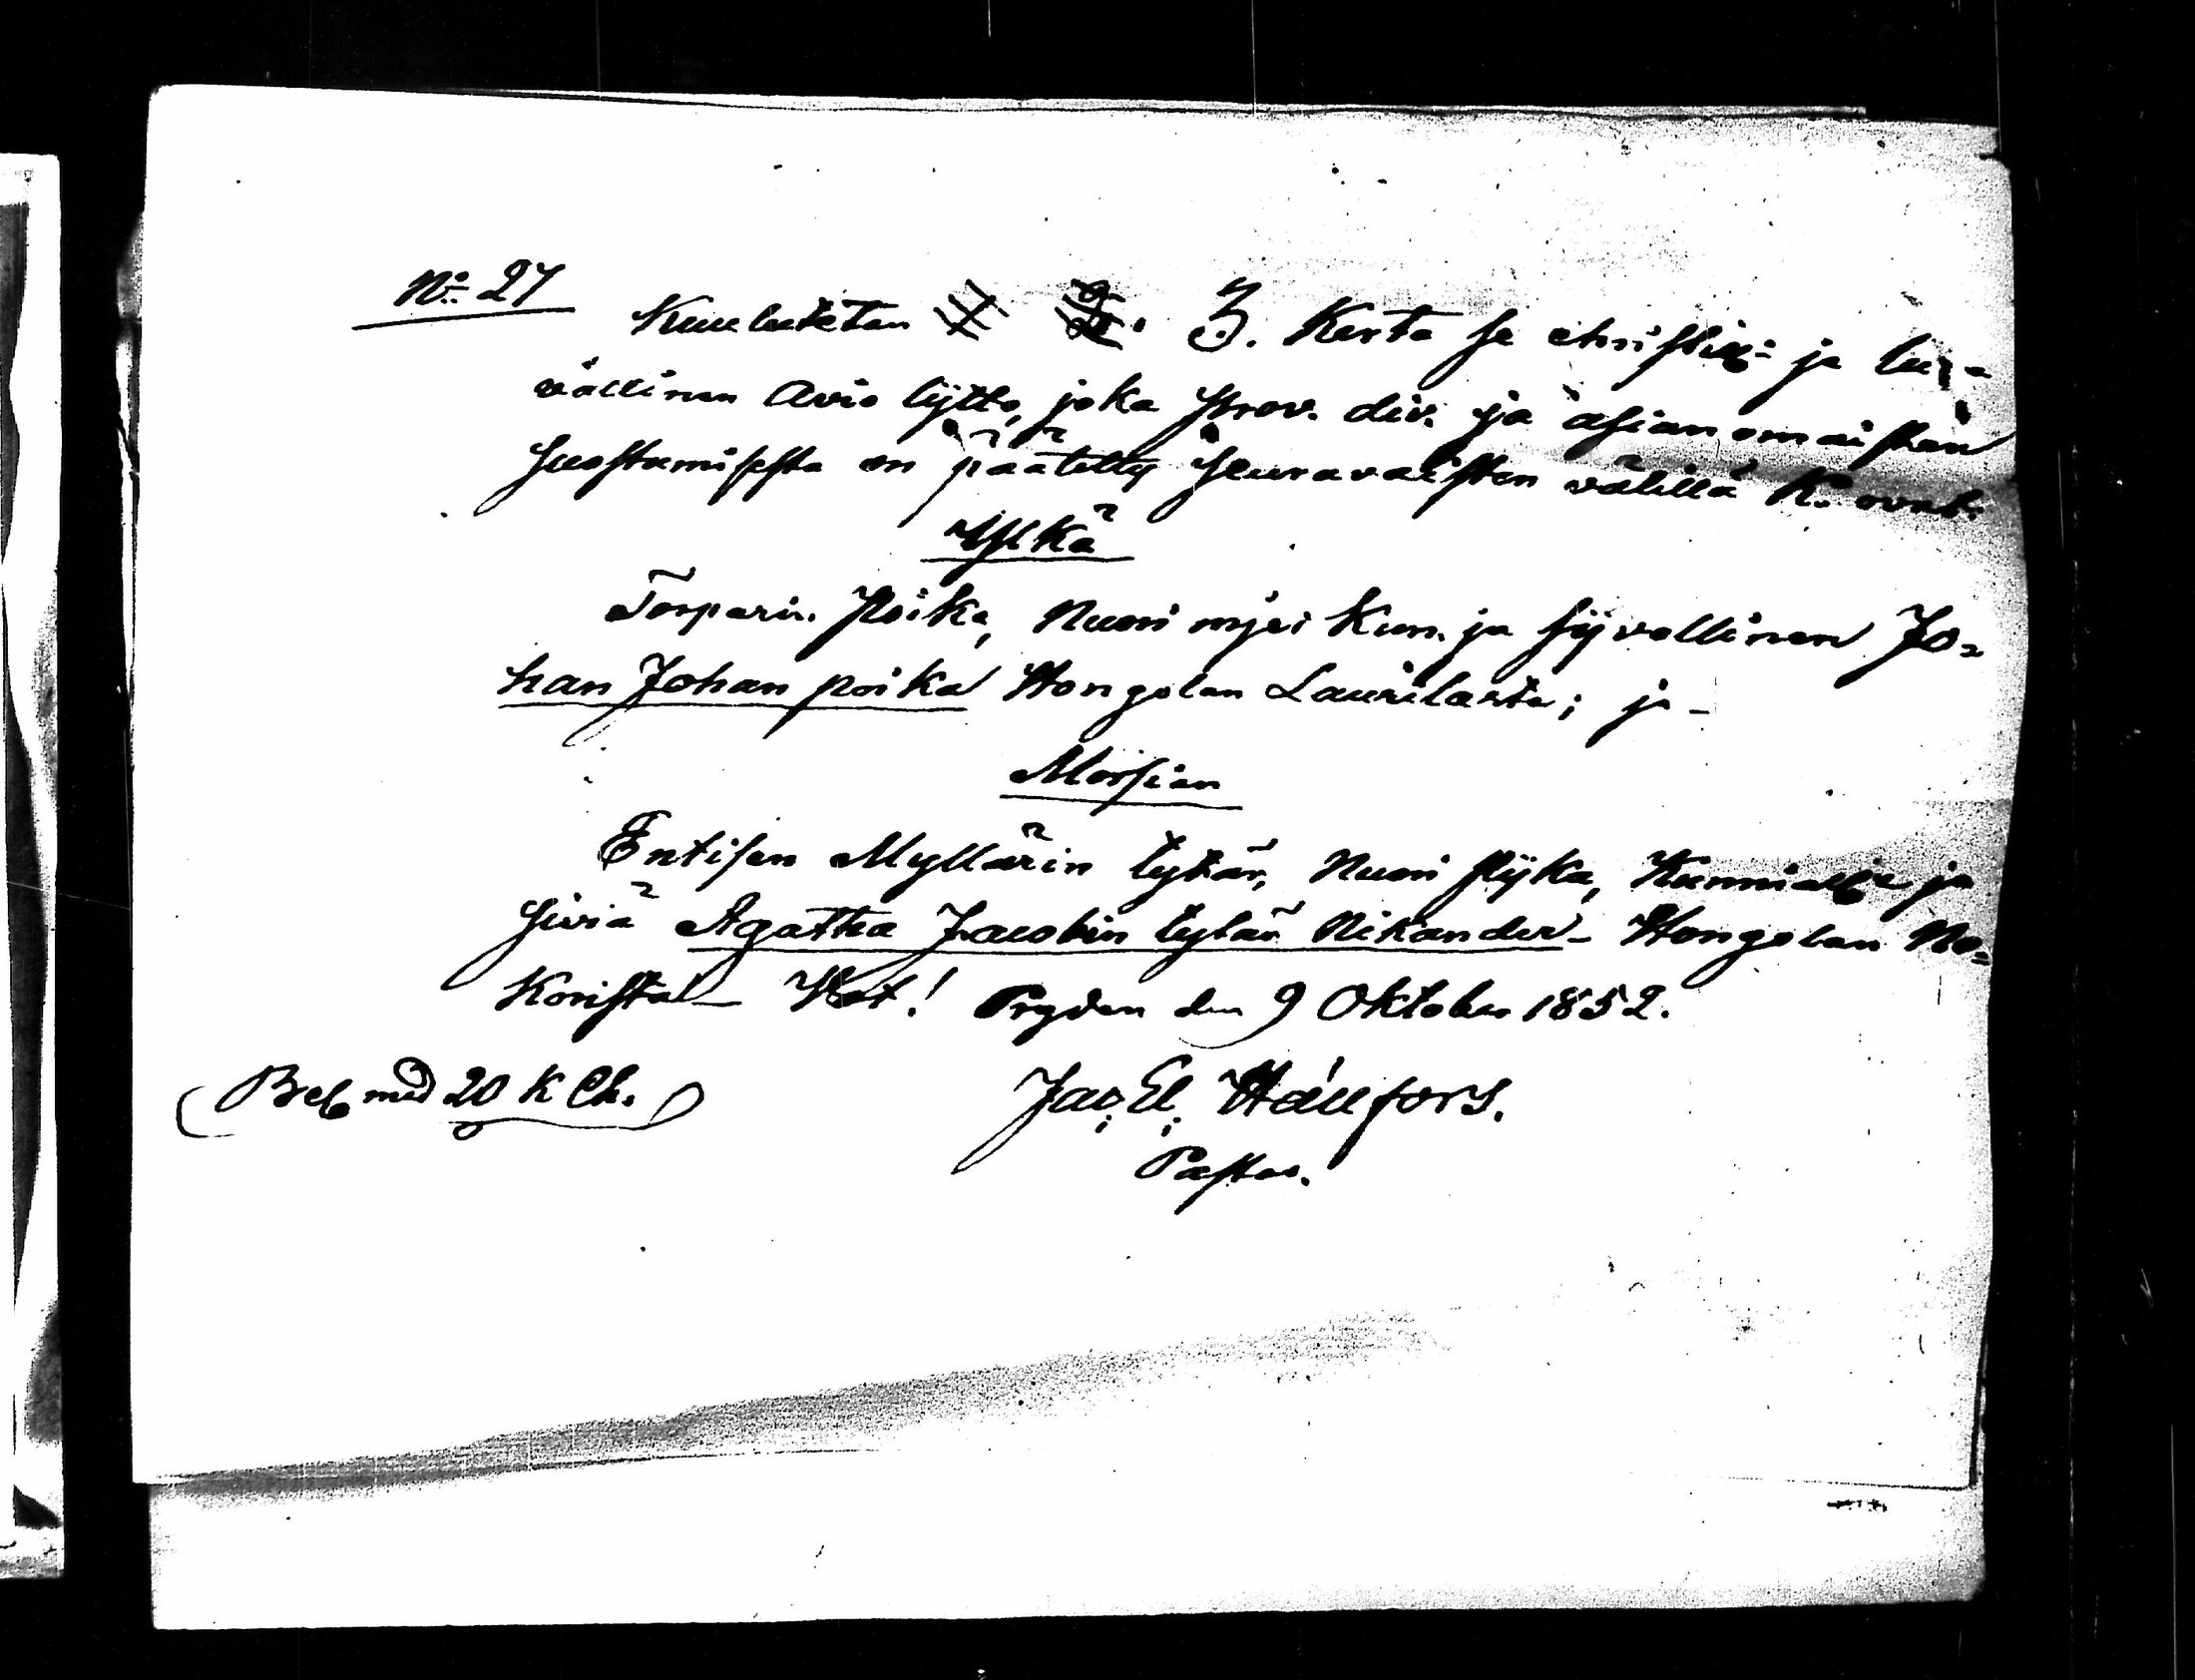 No 27
Kuulutetan 3. Kerta se christil: ja lu-
vallinen Avio lijtto, joka prov. div. ja asianomaisten
suostumisesta on päätetty seuravaisten välillä K. ovat:
Ylkä
Torparin Poika, Nuori mjes Kun. ja sijvollinen Jo=
han Johan poika Hongolan Laurilasta; ja -
Morsian
Entisen Myllärin tytär, Nuori Pijka, Kunniall: ja
siviä Agatha Jacobin tytär Nikander - Hongolan No=
Korista -  den 9 Oktober 1852.
(Bel med 20 K Ch.)
Jac: El: Hällfors.
Pastor.